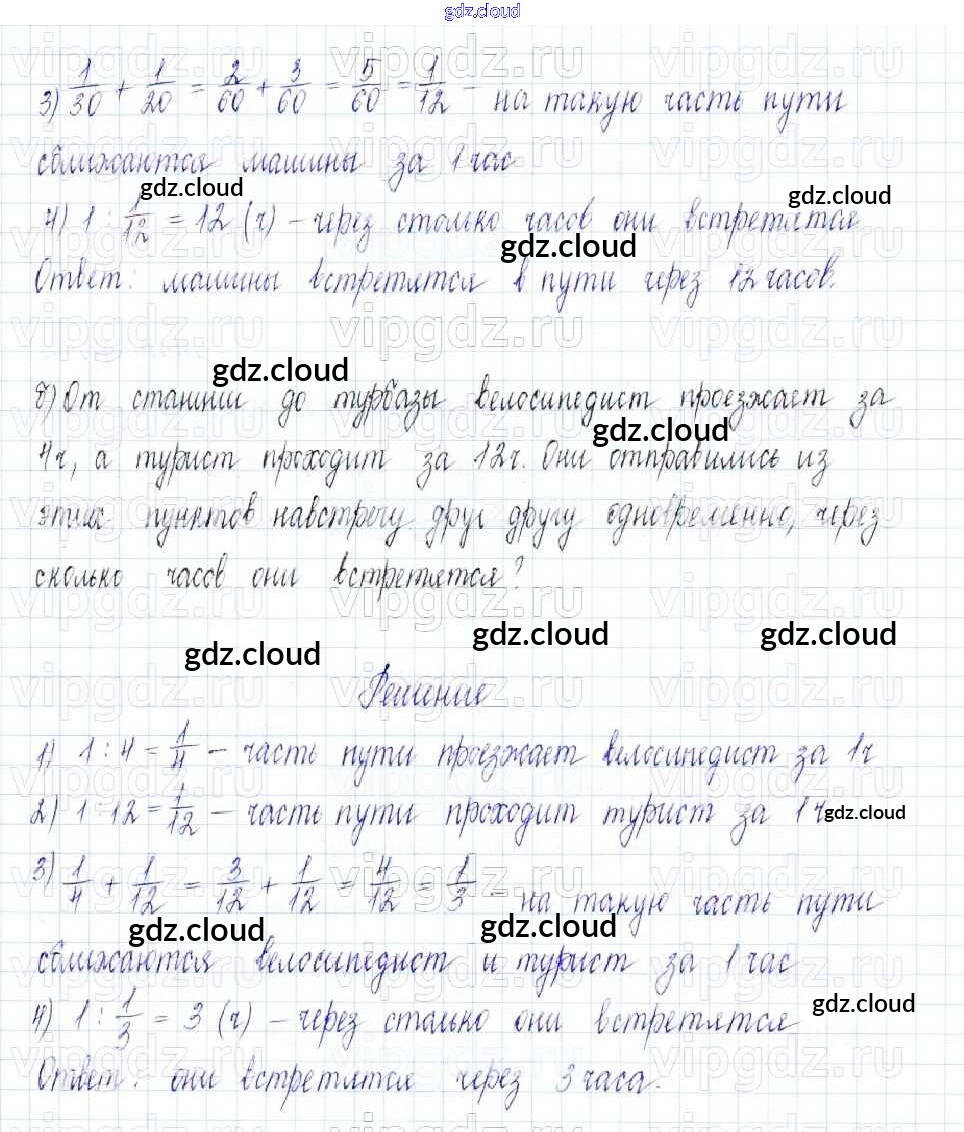 gdz.cloud
3) 1/30 + 1/20 = 2/60 + 3/60 = 5/60 = 1/12 – на такую часть пути
сближаются машины за 1 час
gdz.cloud gdz.cloud
4) 1 : 1/12 = 12 (ч) – через столько часов они встретятся
gdz.cloud
Ответ: машины встретятся в пути через 12 часов.
gdz.cloud
б) От станции до турбазы велосипедист проезжает за
gdz.cloud
4ч, а турист проходит за 12ч. Они отправились из
этих пунктов навстречу друг другу одновременно, через
сколько часов они встретятся?
gdz.cloud gdz.cloud gdz.cloud
Решение
1) 1 : 4 = 1/4 – часть пути проезжает велосипедист за 1ч
2) 1 : 12 = 1/12 – часть пути проходит турист за 1ч
gdz.cloud
3) 1/4 + 1/12 = 3/12 + 1/12 = 4/12 = 1/3 – на такую часть пути
gdz.cloud gdz.cloud
сближаются велосипедист и турист за 1 час
gdz.cloud
4) 1 : 1/3 = 3 (ч) – через столько они встретятся
Ответ: они встретятся через 3 часа.
vipgdz.ru